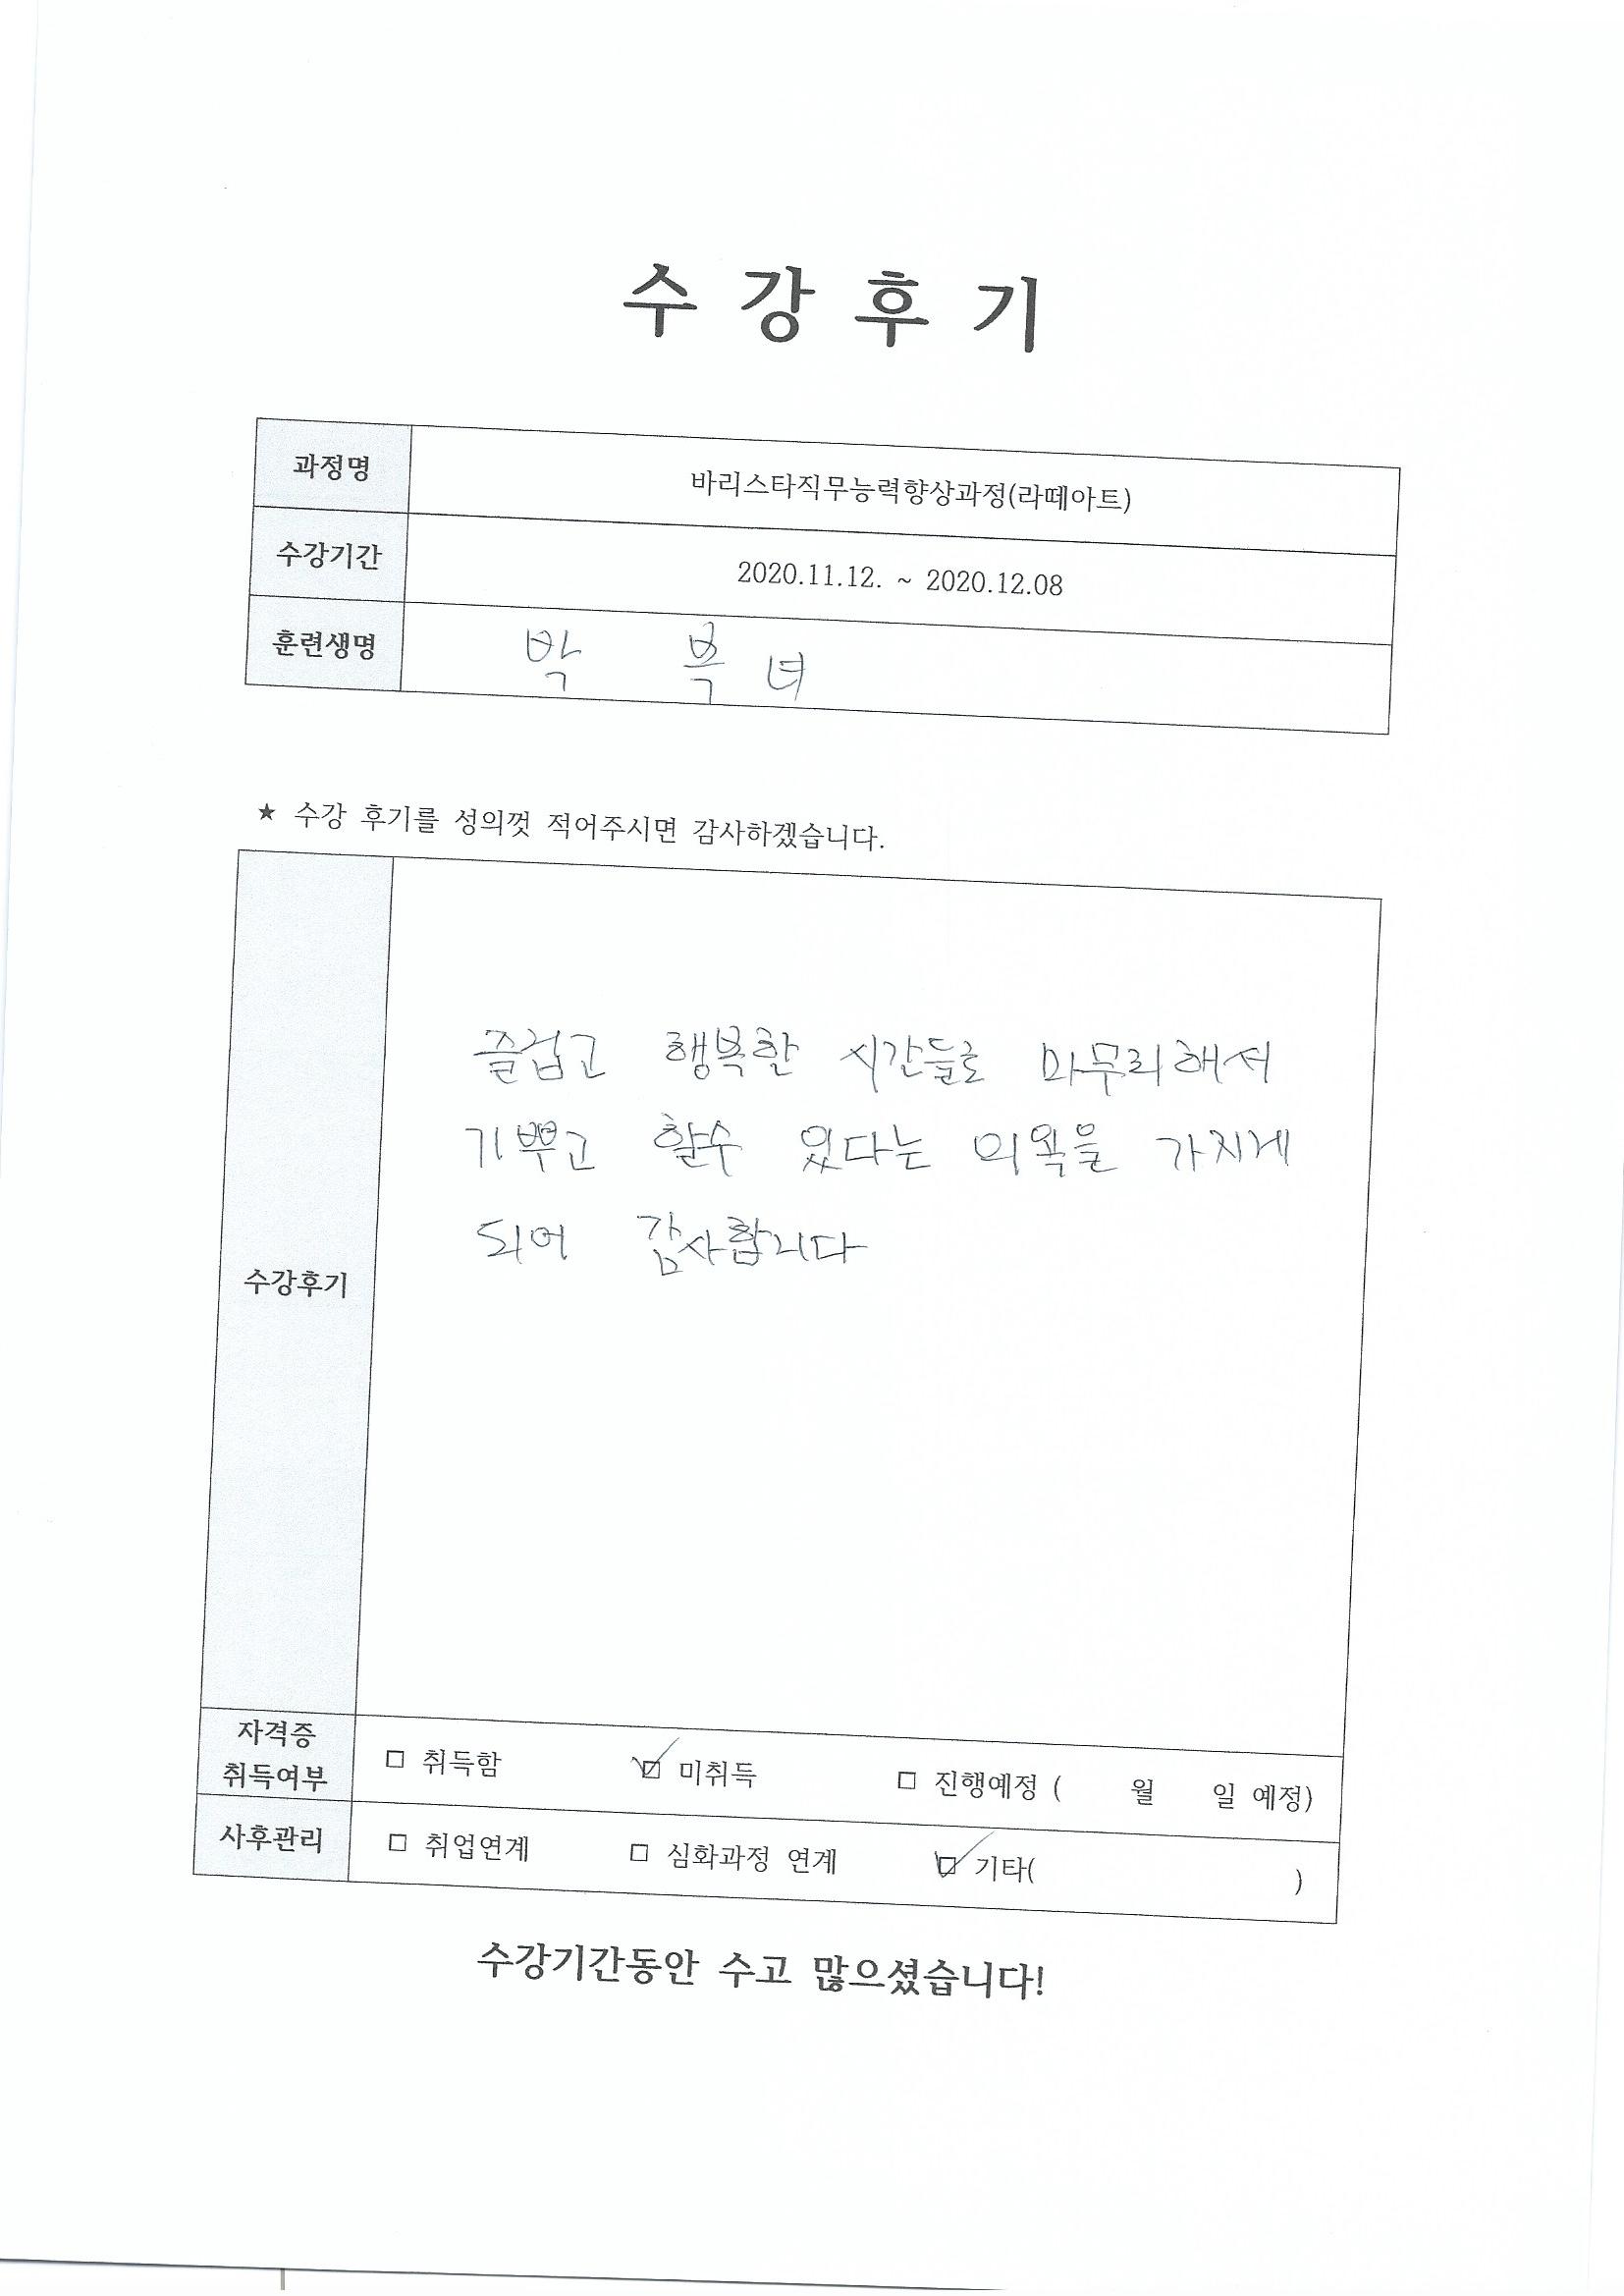 수 강 후 기
과정명 바리스타직무능력향상과정(라떼아트)
수강기간 2020.11.12. ~ 2020.12.08
훈련생명 박 복 녀
★ 수강 후기를 성의껏 적어주시면 감사하겠습니다.
수강후기
즐겁고 행복한 시간들로 마무리해서
기쁘고 할수 있다는 의욕을 가지게
되어 감사합니다
자격증
취득여부
□ 취득함 ☑ 미취득 □ 진행예정 ( 월 일 예정)
사후관리 □ 취업연계 □ 심화과정 연계 ☑ 기타( )
수강기간동안 수고 많으셨습니다!